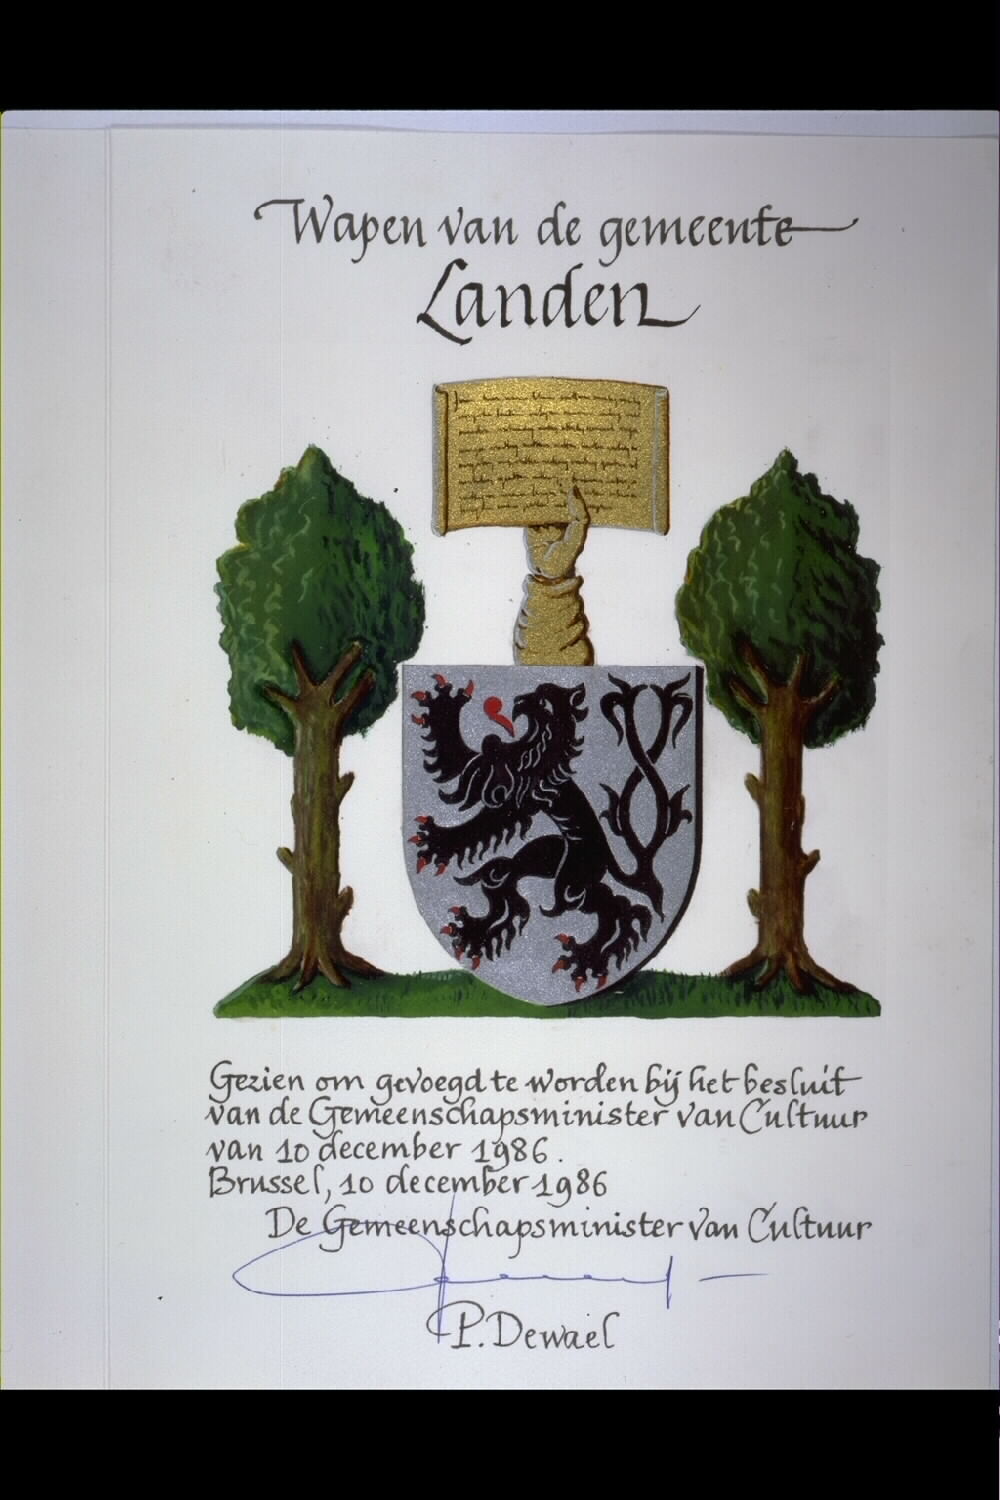 Wapen van de gemeente
Landen
Gezien om gevoegd te worden bij het besluit
van de Gemeenschapsminister van Cultuur
van 10 december 1986.
Brussel, 10 december 1986
De Gemeenschapsminister van Cultuur
P. Dewael